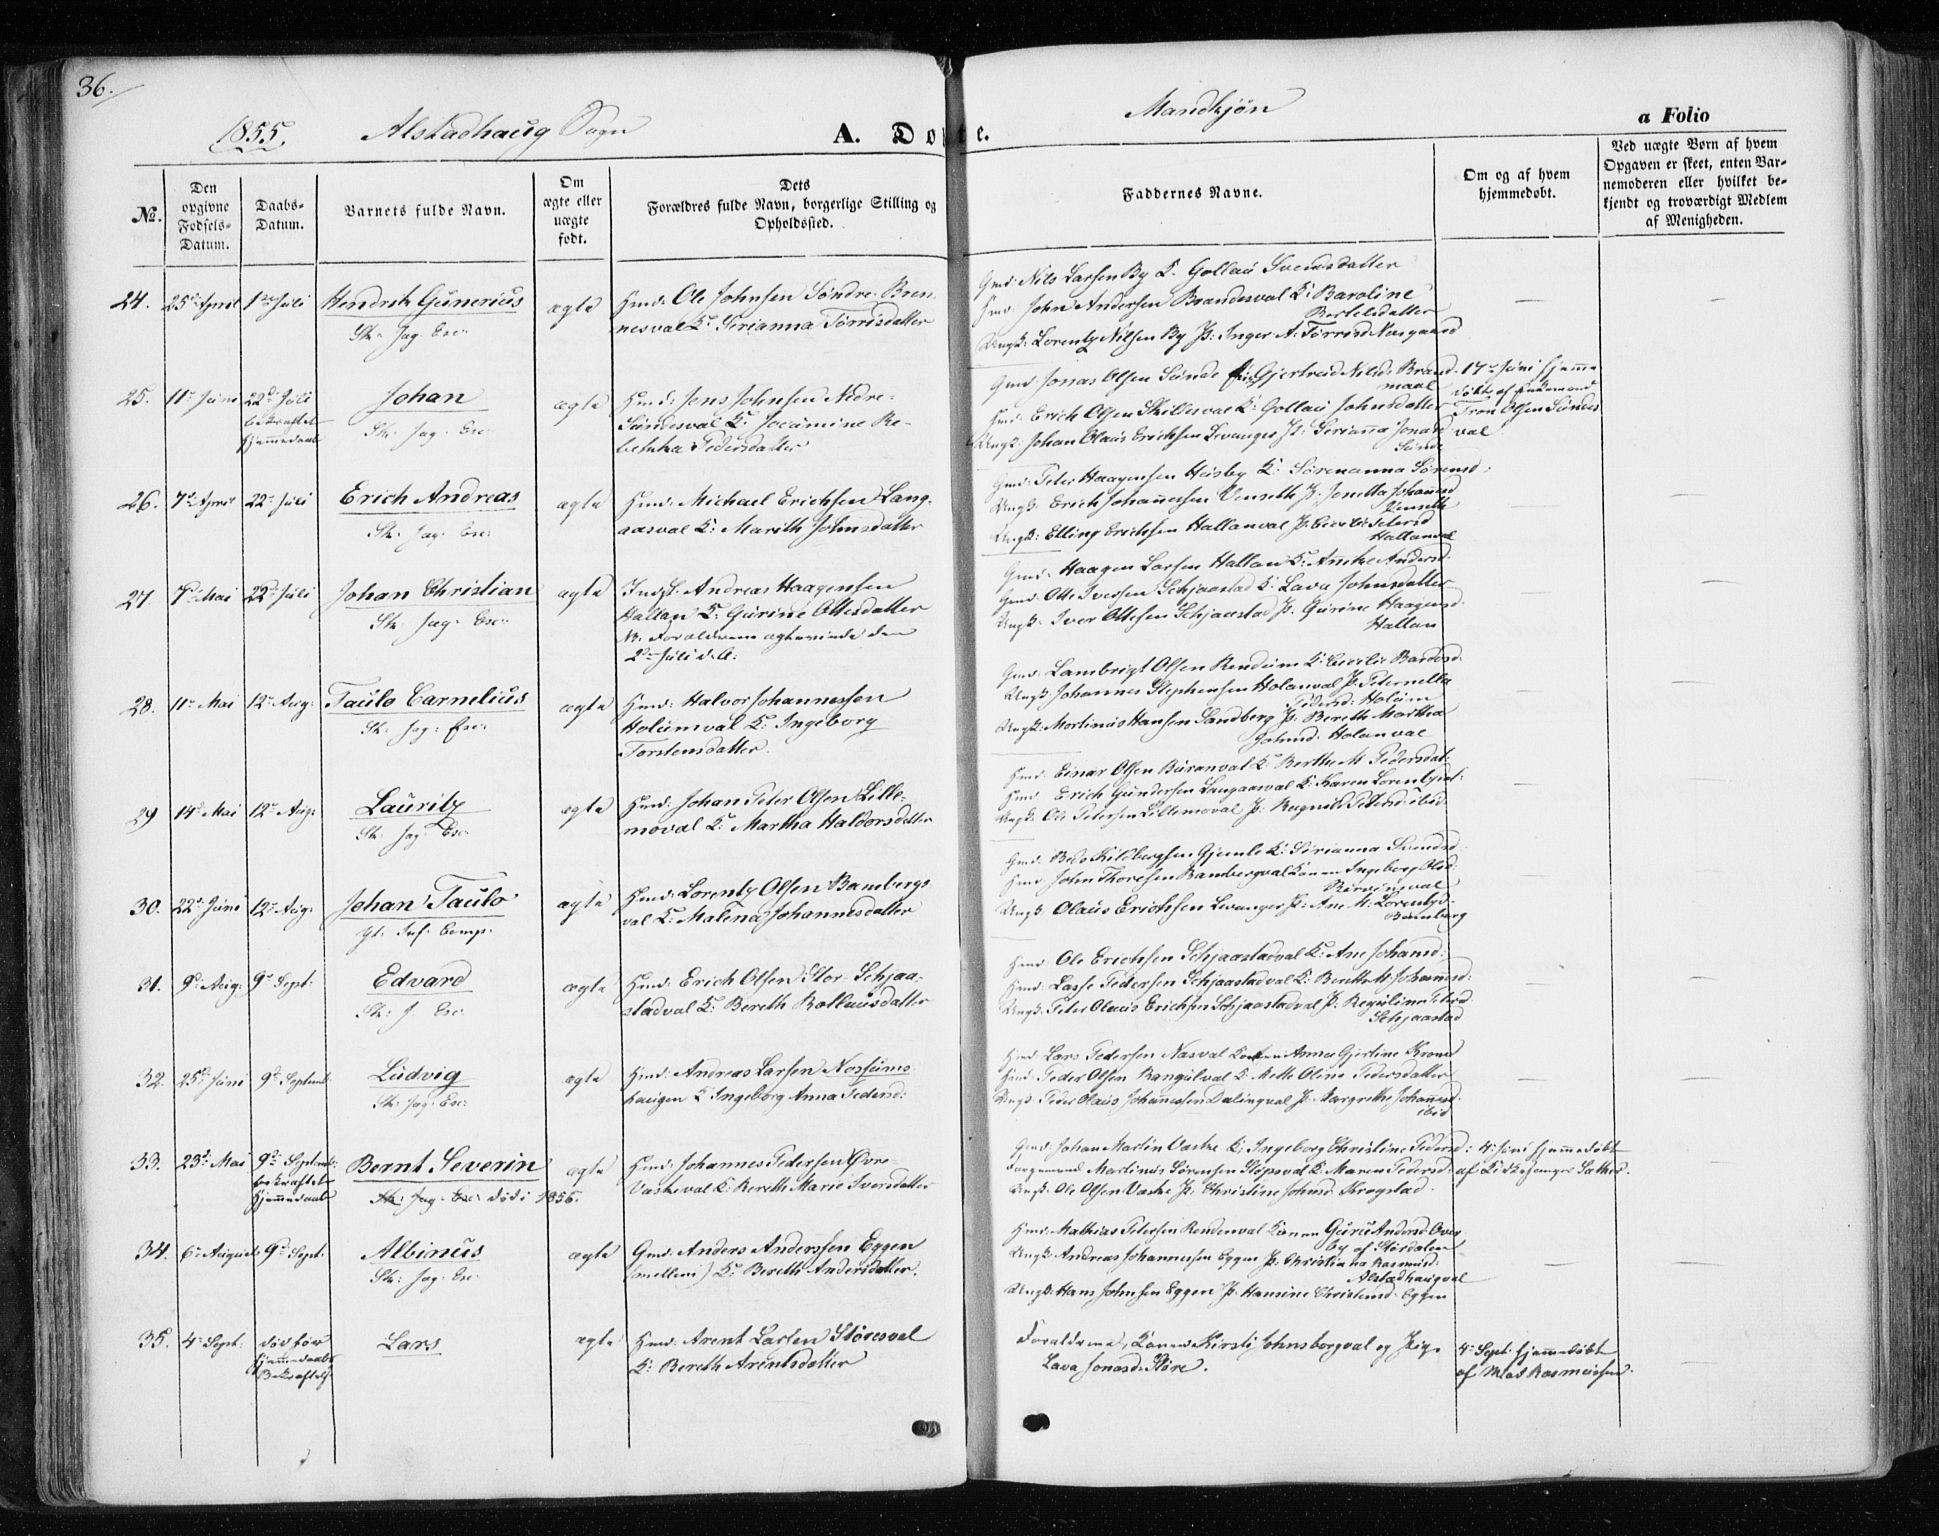 36.
1855. Alstadhaug Sogn A. Døbte. Mandkjøn a Folio
No.
Den opgivne Fødsels-Datum.
Daabs-Datum.
Barnets fulde Navn.
Om ægte eller uægte født.
Dets Forældres fulde Navn, borgerlige Stilling og Opholdssted.
Faddernes Navne.
Om og af hvem hjemmedøbt.
Ved uægte Børn af hvem Opgaven er skeet, enten Barnemoderen eller hvilket bekjendt og troværdigt Medlem af Menigheden.
24. 25de April 1ste Juli Hendrik Gunerius ægte Huusmd: Ole Johnsen Søndre Bren-
nesval K: Serianna Tørrisdatter
Gmd: Nils Larsen By K: Gollau Svendsdatter
Hmd: John Andersen Brandesval K: Baroline
Bertelsdatter
Ungk: Lorentz Nilsen By P: Inger A. Tørrisd Næsgaard
25. 11te Juni 22de Juli Johan ægte Hmd: Jens Johnsen Nedre-
bekræftet
hjemmedaab
Sundesval K: Jocumine Re-
bekka Pedersdatter
Gmd: Jonas Olsen Sunde Gjertrud Nilsd: Brand
maal
Hmd: Erich Olsen Skillesval K: Gollau Johnsdatter
Ungk: Johan Olaus Erichsen Levanger P: Serianna Jonasd
Sunde
17de Juni hjemme
døbt af
Tron Olsen Sundes
val
26. 7de April 22de Juli Erich Andreas ægte Hmd: Michael Erichsen Lang-
aasval K: Marith Johnsdatter
Gmd: Peter Haagensen Husby K: Sørenanna Sørensd:
Ungk: Erich Johannessen Venseth P: Jonetta Johannesd
Venseth
Ungk: Elling Erichsen Hallanval P: Peterd
Hallanval
27. 7de Mai 22de Juli Johan Christian ægte Inds: Andreas Haagensen
Hallan K: Gurine Ottesdatter
N: Forældrene ægteviede den
2den Juli d: A:
Gmd: Haagen Larsen Hallan K: Anne Andersd:
Gmd: Otte Iversen Schjaastad K: Lava Johnsdatter
Ungk: Iver Ottesen Schjaastad P: Gurine Haagensd:
Hallan
28. 11te Mai 12te Aug: Paulo Cornelius ægte Hmd: Halvor Johannessen
Holumval K: Ingeborg
Torstensdatter.
Gmd: Lambrigt Olsen Rendum K: Bardosd:
Ungk: Johannes Stephensen Holanval P: Peternella
Pedersd: Holum
Ungk: Mortinus Hansen Sandberg P: Bereth Martha
Johnsd. Holanval
29 14de Mai 12te Aug: Lauritz ægte Hmd: Johan Peter Olsen Lille-
moval K: Martha Haldorsdatter
Hmd: Einar Olsen Buranval K: Berthe M Pedersdat:
Hmd: Erich Gundersen Langaasval K: Karen Lorentzdat:
Ungk: Ole Petersen Lillemoval P: Regnild Petersd: ibid:
30. 22de Juni 12te Aug: Johan Paulo ægte Hmd: Lorentz Olsen Bambergs-
val K: Malena Johannesdatter
Gmd: Kildbergsen Gjemle K: Serianna Svendsd:
Hmd: John Thoresen Bambergval Konen Ingeborg Olsd:
Ungk: Olaus Erichsen Levanger P: Ane M: Lorentzd:
Bamberg
31. 9de Aug: 9de Sept: Edvard ægte Hmd: Erich Olsen Stor-Schjaa-
stadval K: Bereth Rollausdatter
Hmd: Ole Erichsen Schjaastadval K: Ane Johansd:
Hmd: Lasse Pedersen Schjaastadval K: Bereth M: Johannesd:
Ungk: Peter Olaus Erichsen Schjaastadval P: Regeline Petersd:
Schjaastad
32. 25de Juni 9de Septemb: Ludvig ægte Hmd: Andreas Larsen Nossums-
haugen K: Ingeborg Anna Pedersd:
Hmd: Lars Pedersen Næsval Konen Anna Gjertine
Hmd: Peder Olsen Rangulval K: Mette Oline Pedersdatter
Ungk: Peder Olaus Johannessen Dalingval P: Margrethe Johannesd:
ibid
33. 23de Mai 9de Septemb: Bernt Severin ægte Hmd: Johannes Pedersen Øvre-
bekræftet
hjemmedaab
død i 1856.
Vaskeval K: Bereth Marie Iversdatter
Gmd: Johan Martin Vaske K: Ingeborg Christine Pedersd:
Martinus Sørensen Stopsval K: Maren Pedersd:
Ungk: Ole Olsen Vaske P: Christine Johnsd Krogstad.
4de Juni hjemmedøbt
af Kirkesanger Sakshd.
34. 6te August 9de Sept: Albinus ægte Gmd: Anders Anderssen Eggen
(mellem) K: Bereth Andersdatter.
Hmd: Mathias Petersen Rendenval Konen Guru Andersd Over
by af Størdalen
Ungk: Andreas Johannesen Eggen P: Christianna Rasmusd:
Alstadhaugval
Ungk: Hans Johnsen Eggen P: Hansine Christensd: Eggen
35. 4de Sept: død før Lars ægte Hmd: Arent Larsen Støresval
hjemmedaabs
Bekræftelse
K: Bereth Arentsdatter
Forældrene, Konen Kirsti Johnsborgval og Pige
Lava Jonasd: Støre.
4de Sept: hjemmedøbt
af Mad Rasmussen.